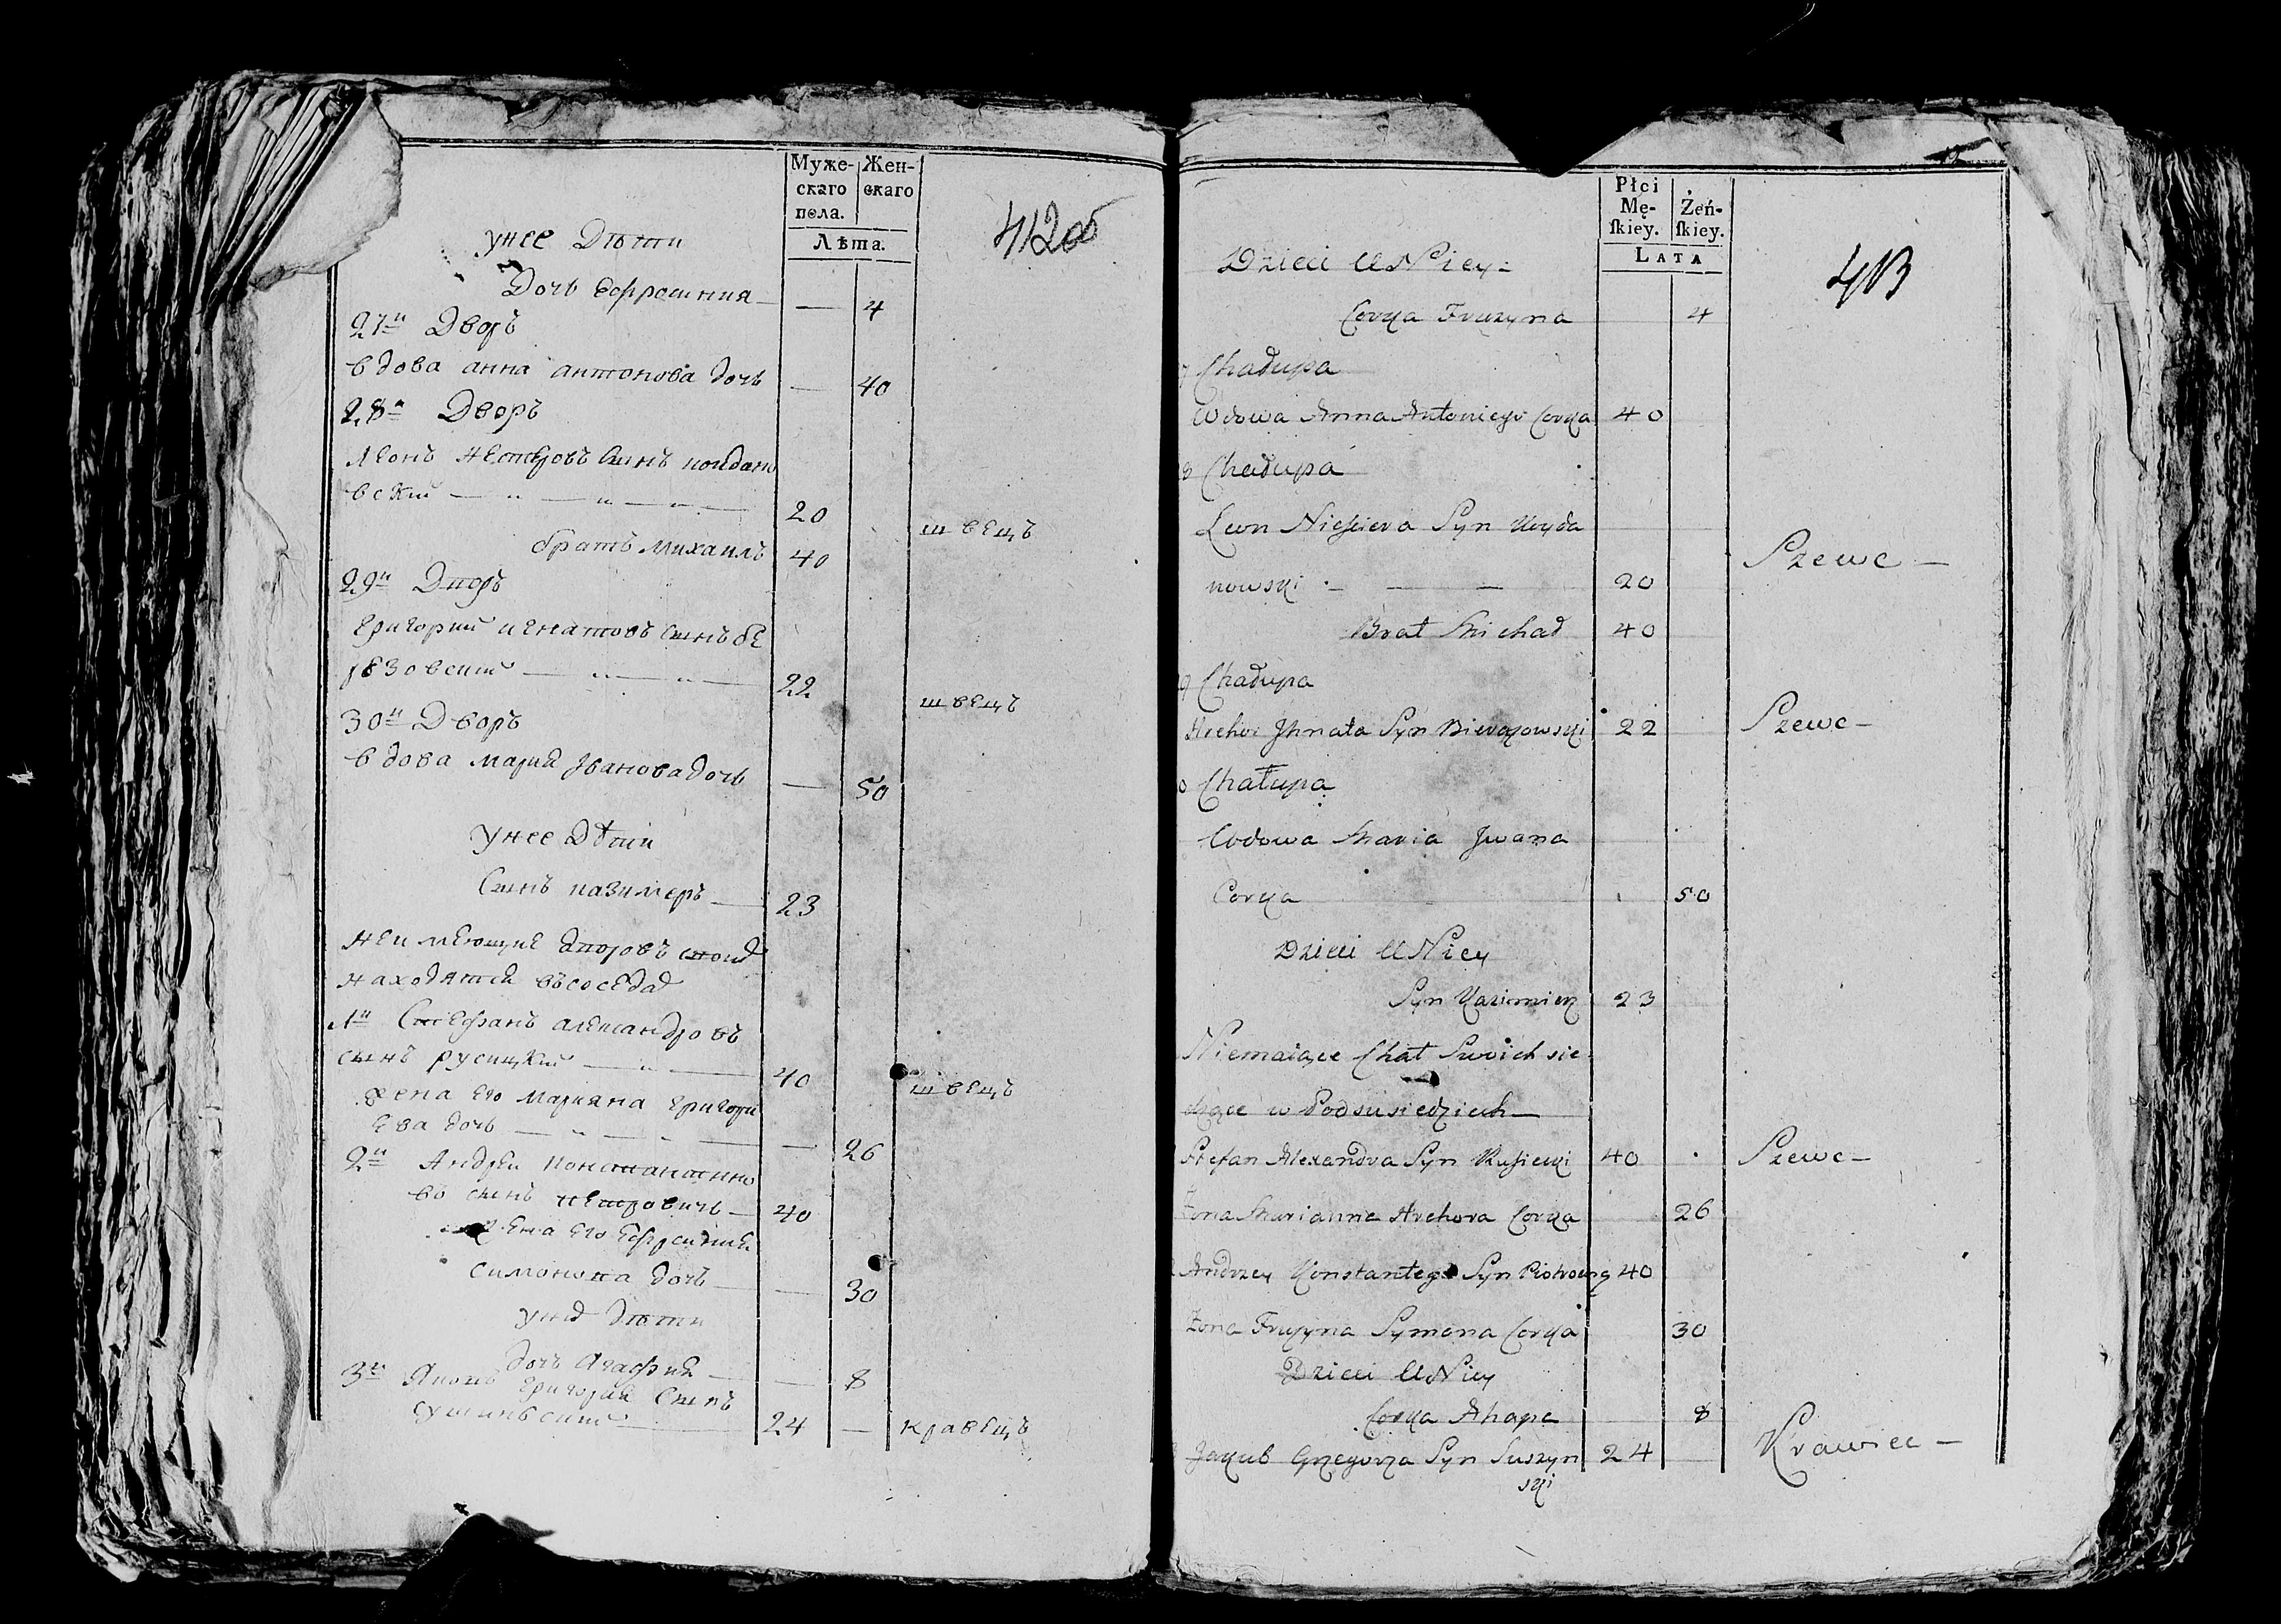 Муже-
скаго
пола.
Жен-
скаго
Лѣта.
412об
унее Дѣти
Дочь Ефросиния — 4
27й Дворъ
вдова анна антонова дочь — 40
28й Дворъ
Леонъ Нестеровъ сынъ
вский 20 швецъ
братъ Михаилъ 40
29й Дворъ
Григорий игнатовъ сынъ бе
резовский 22 швецъ
30й Дворъ
вдова мария Iванова дочь — 50
унее Дѣти
Сынъ казимеръ 23
Неимеющие дворовъ
находятся въ соседах
1й Стефанъ александровъ
сынъ русицкий 40 швецъ
жена его марияна григори
ева дочь — 26
2й Андрей константино
въ сынъ петровичъ 40
жена его
симонова дочь — 30
уних Дѣти
дочь Агафия — 8
3й Яковъ григория сынъ
сушинский 24 — кравецъ
Płci
Mę-
ſkiey.
Żeń-
ſkiey.
LATA
413
Dzieci U Niey:
Corka Fruzyna 4
7 Chałupa
Wdowa Anna Antoniego Corka 40
8 Chałupa
Leon Niesciera Syn Kuyda
nowski — — 20 Szewc —
Brat Michał 40
9 Chałupa
Hrehor Jhnata Syn Bierozowski 22 Szewc —
0 Chałupa
Wdowa Maria Jwana
Corka 50
Dzieci U Niey
Syn Kazimierz 23
Niemaiące Chat Swoich sie
dzące w Podsusiedziech —
Stefan Alexandra Syn Rusiecki 40 Szewc —
Żona Marianna Hrehora Corka 26
Andrzey Konstantego Syn Piotrowicz 40
Żona Fruzyna Symona Corka 30
Dzieci U Niey
Corka Ahapa 8
Jakub Grzegorza Syn Suszyn 24 Krawiec —
ski